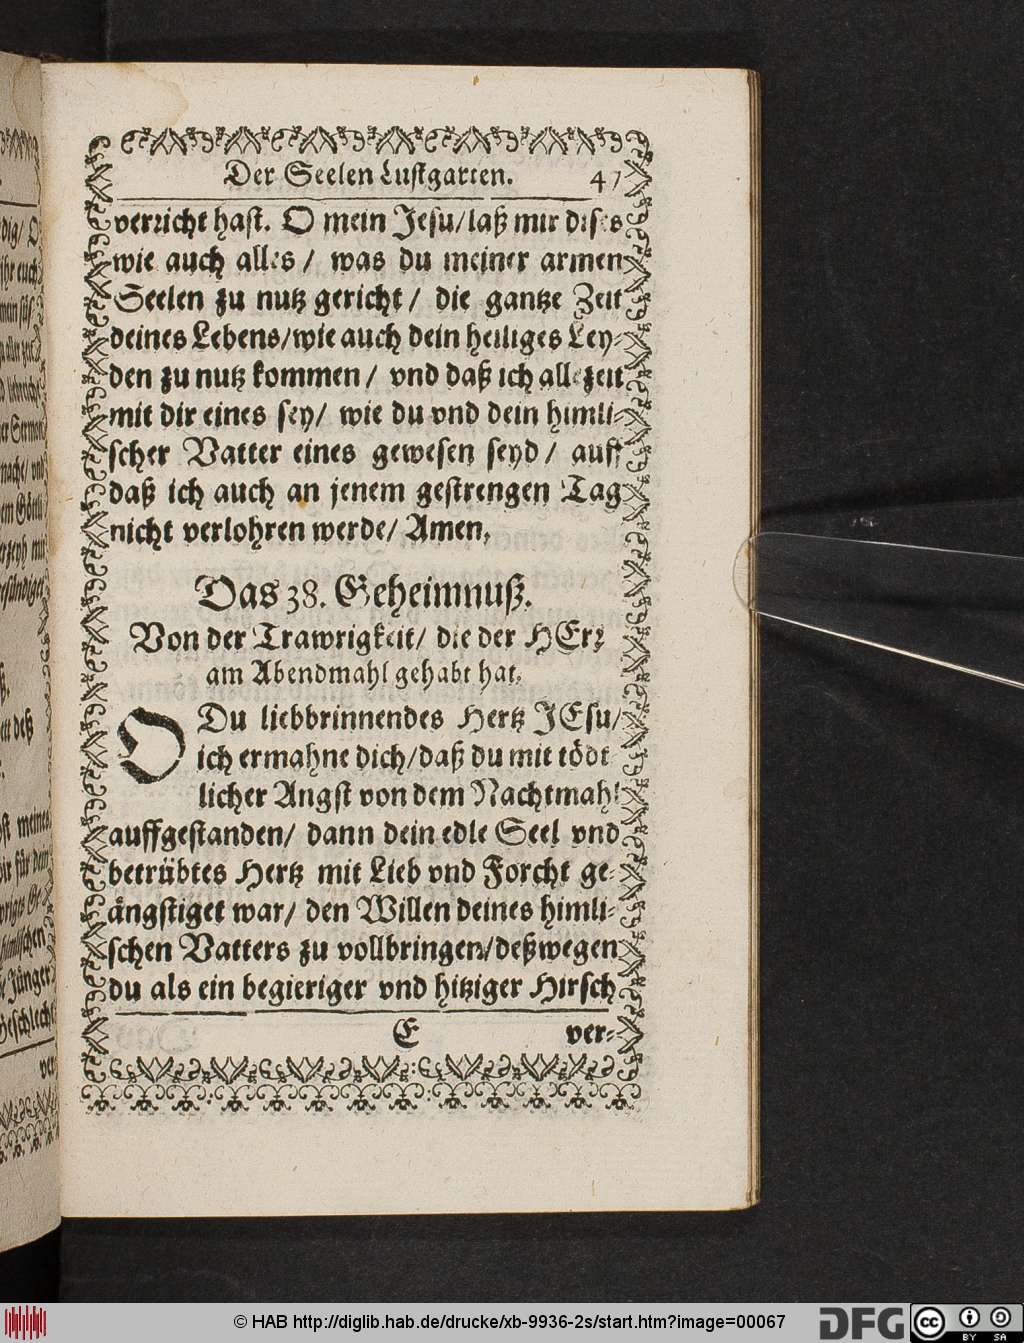 Der Seelen Lustgarten. 47
verricht hast. O mein Jesu/ laß mir dises
wie auch alles / was du meiner armen
Seelen zu nutz gericht / die gantze Zeit
deines Lebens/ wie auch dein heiliges Ley-
den zu nutz kommen / vnd daß ich allezeit
mit dir eines sey/ wie du vnd dein himli-
scher Vatter eines gewesen seyd / auff
daß ich auch an jenem gestrengen Tag
nicht verlohren werde/ Amen,
Das 38. Geheimnuß.
Von der Trawrigkeit/ die der HErz
am Abendmahl gehabt hat.
O Du liebbrinnendes Hertz JEsu/
ich ermahne dich/ daß du mit tödt
licher Angst von dem Nachtmahl
auffgestanden/ dann dein edle Seel vnd
betrübtes Hertz mit Lieb vnd Forcht ge-
ängstiget war/ den Willen deines himli-
schen Vatters zu vollbringen/ deßwegen
du als ein begieriger vnd hitziger Hirsch
E ver-
dig/ O
ihr euch
mein süs-
er Sternen
nache/ vnd
em Göttli-
verzeyh mir
ett deß
st meines
ir für dem
himlischen
e Jünger
Geschlecht
ver-
© HAB http://diglib.hab.de/drucke/xb-9936-2s/start.htm?image=00067
DFG
cc BY SA